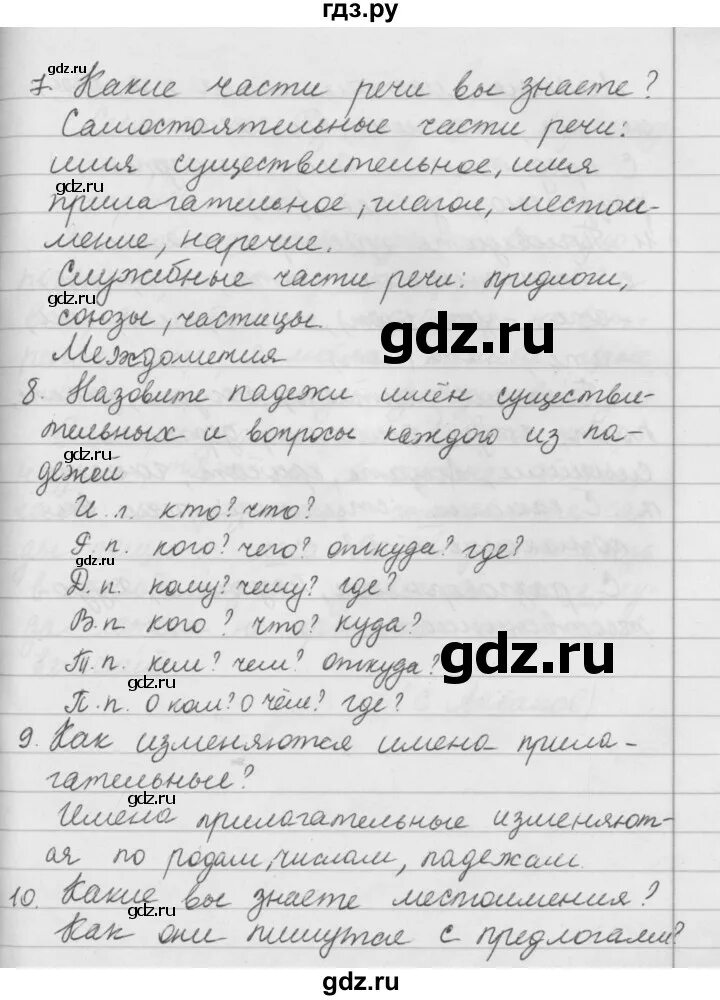 гдз.ру
gdz.ru
7. Какие части речи вы знаете?
Самостоятельные части речи:
имя существительное, имя
gdz.ru
прилагательное, глагол, местои-
мение, наречие.
Служебные части речи: предлоги,
gdz.ru
союзы, частицы.
gdz.ru
Междометия
8. Назовите падежи имён существи-
тельных и вопросы каждого из па-
gdz.ru
дежей
И.п. кто? что?
gdz.ru
Р.п. кого? чего? откуда? где?
Д.п. кому? чему? где?
gdz.ru
В.п кого? что? куда?
Т.п. кем? чем? откуда?
gdz.ru
gdz.ru
П.п. О ком? О чём? где?
9. Как изменяются имена прила-
гательные?
gdz.ru
Имена прилагательные изменяют-
ся по родам, числам, падежам.
gdz.ru
10. Какие вы знаете местоимения?
Как они пишутся с предлогами?
gdz.ru
gdz.ru